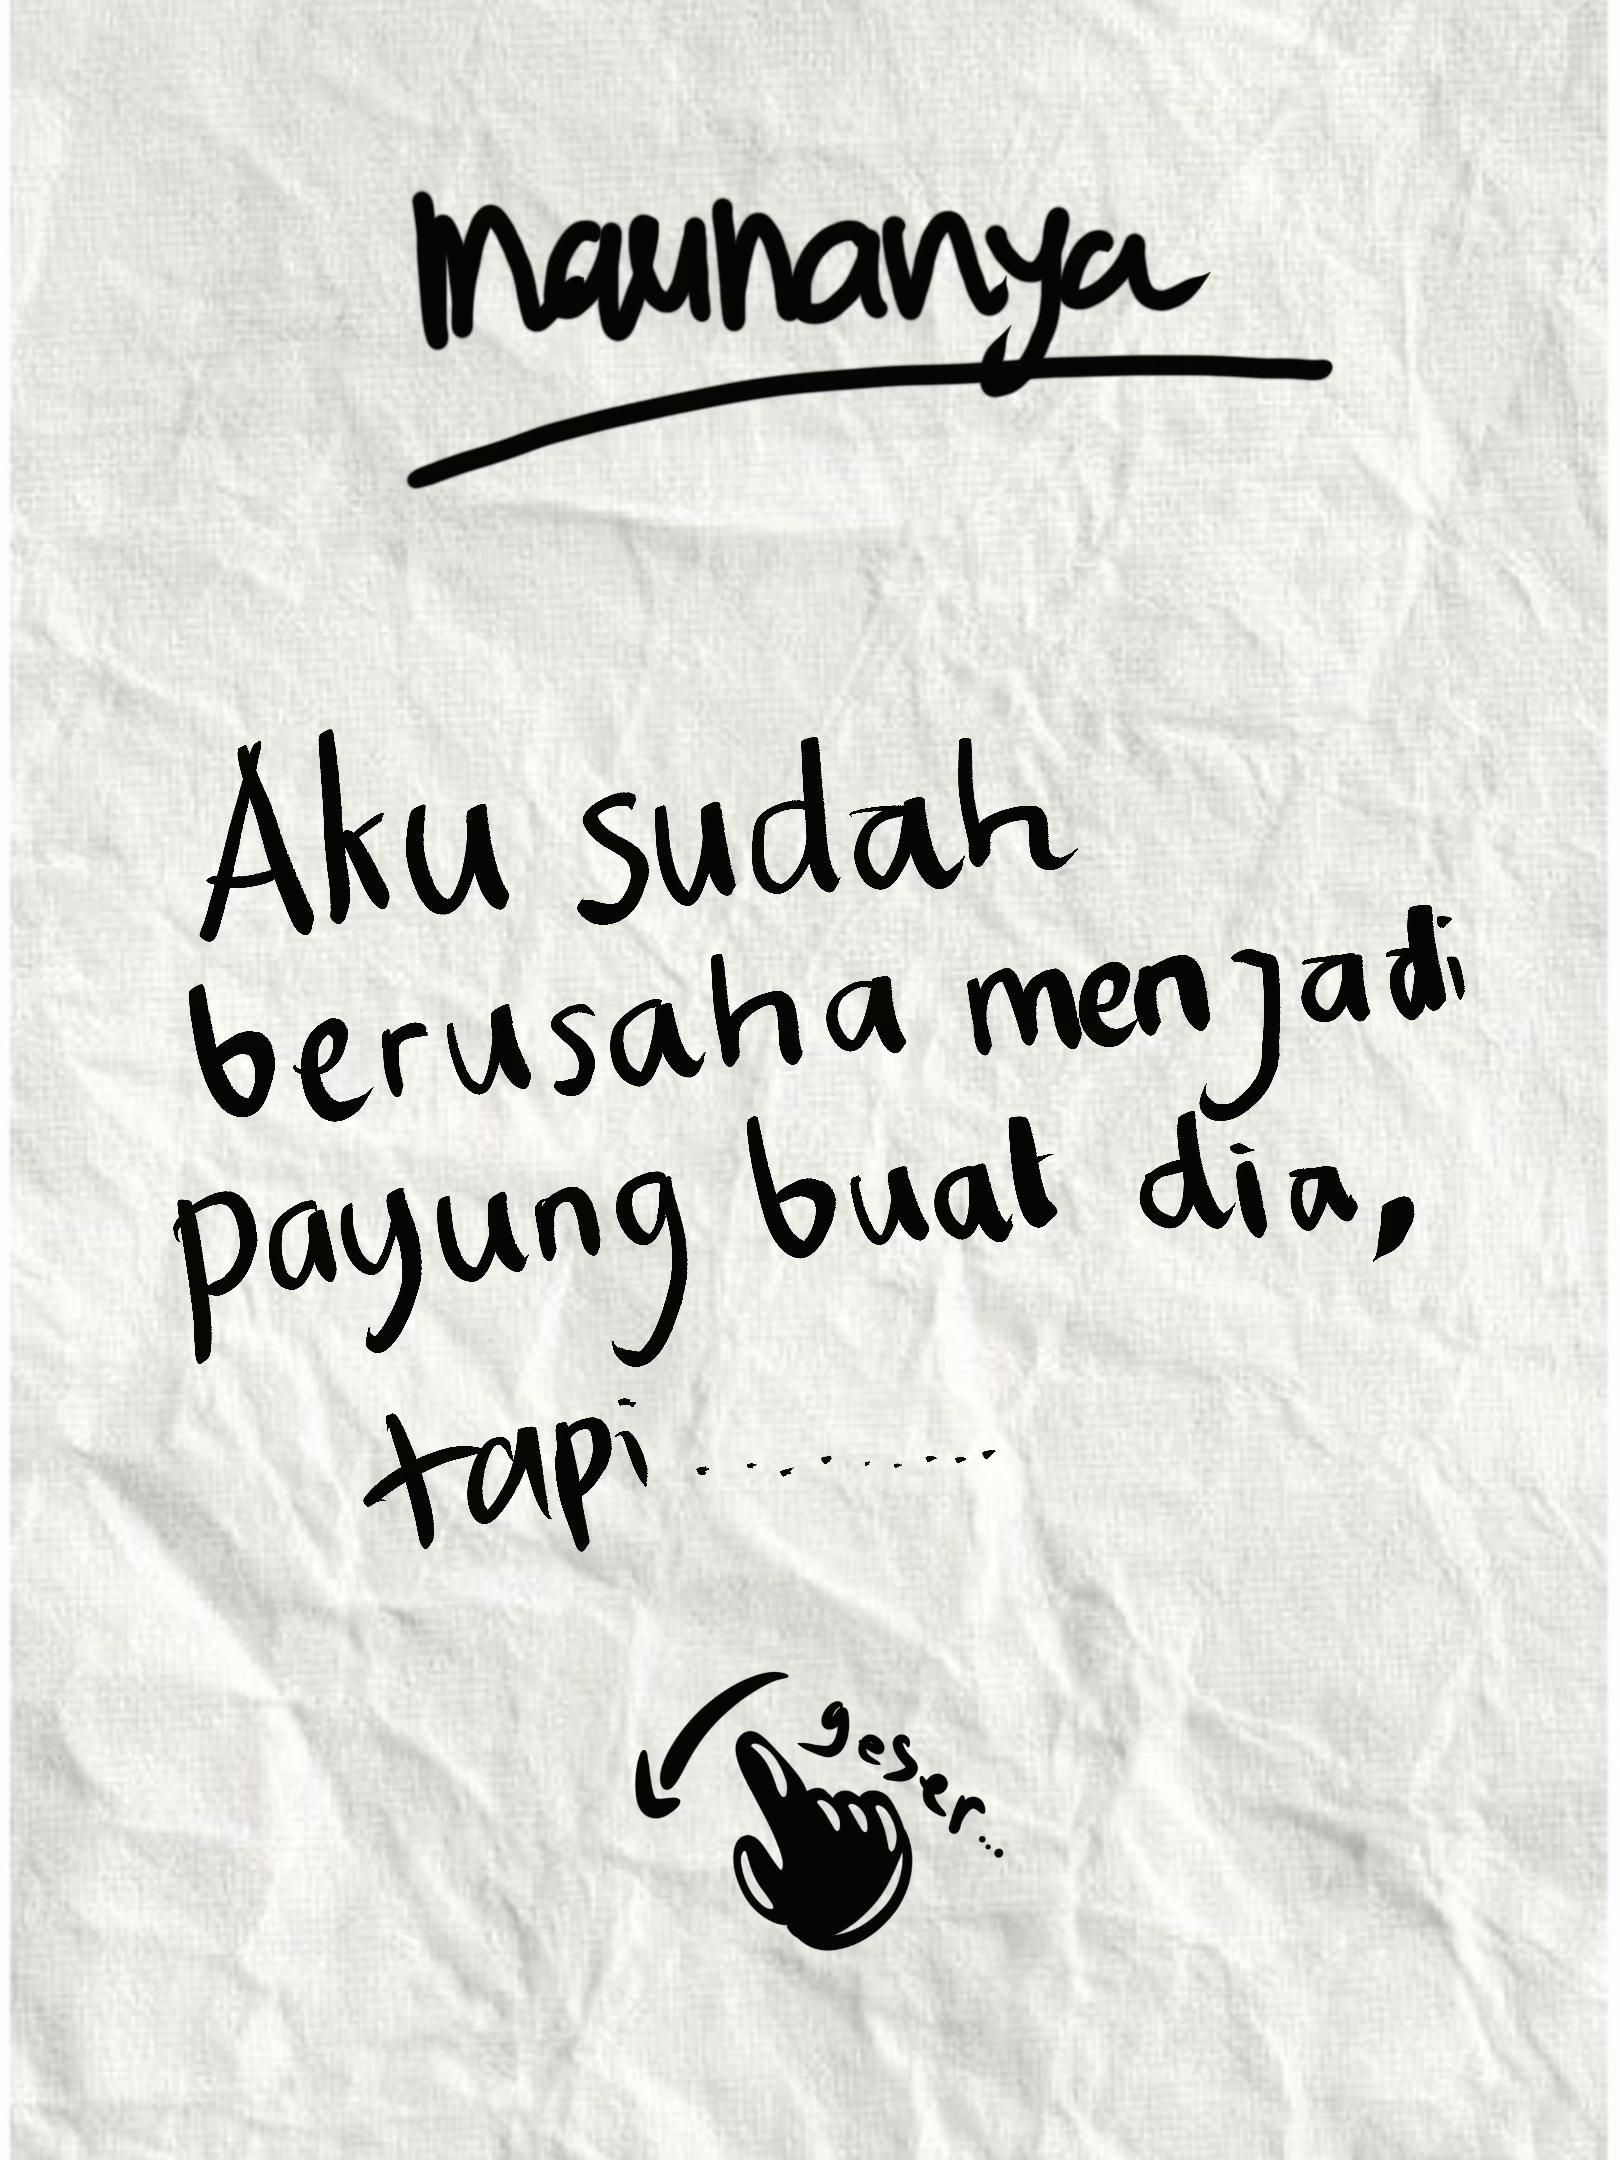 maunanya
Aku sudah
berusaha menjadi
payung buat dia,
tapi .........
geser...